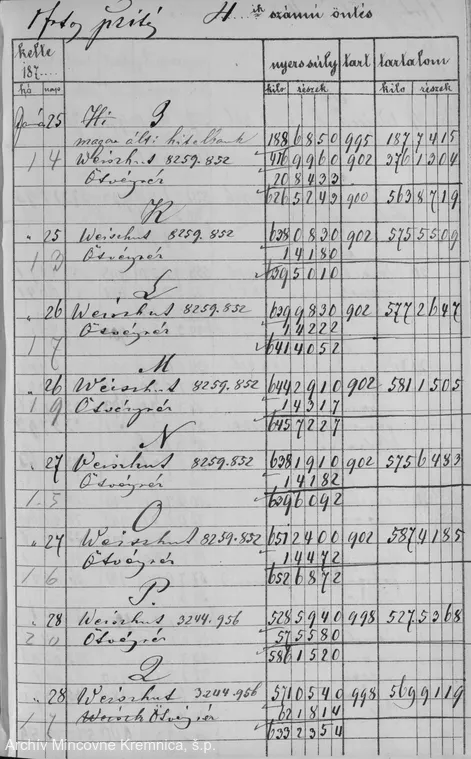 4 ik számú öntés
kelte nyerssúly tart tartalom
187
hó nap kilo részek kilo részek
25 3
magyar ált. hitelbank 188 6850 995 187 7415
14 Weisshut 8259.852 416 9960 902 376 1304
Ötvözréz 20 8433
626 5243 900 563 8719
K
" 25 Weisshut 8259.852 638 0830 902 575 5509
13 Ötvözréz 1 4180
639 5010
L
" 26 Weisshut 8259.852 639 9830 902 577 2647
Ötvözréz 1 4222
17 641 4052
M
" 26 Weisshut 8259.852 644 2910 902 581 1505
19 Ötvözréz 1 4317
645 7227
N
" 27 Weisshut 8259.852 638 1910 902 575 6483
Ötvözréz 1 4182
1.5 639 6092
O
" 27 Weisshut 8259.852 651 2400 902 587 4185
Ötvözréz 1 4472
16 652 6872
P.
" 28 Weisshut 3244.956 528 5940 998 527.5368
20 Ötvözréz 57 5580
586 1520
Q
" 28 Weisshut 3244.956 571 0540 998 569 9119
17 Ötvözréz 62 1814
633 2354
Archív Mincovne Kremnica, š.p.